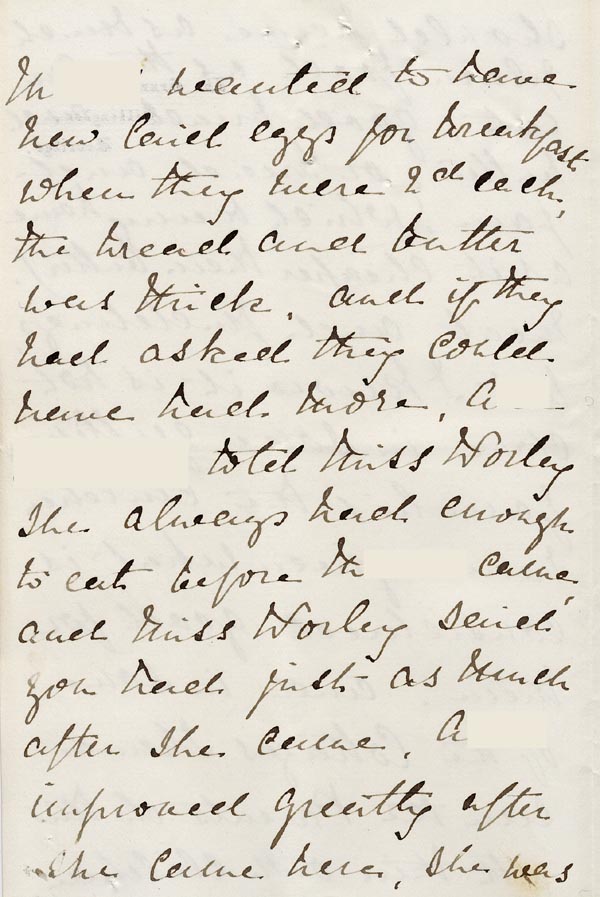 M wanted to have
new laid eggs for breakfast
when they were 2d each,
the bread and butter
was thick, and if they
had asked they could
have had more, A
told Miss Worley
she always had enough
to eat before M came,
and Miss Worley said
you had just as much
after she came. A
improved greatly after
she came here, she was